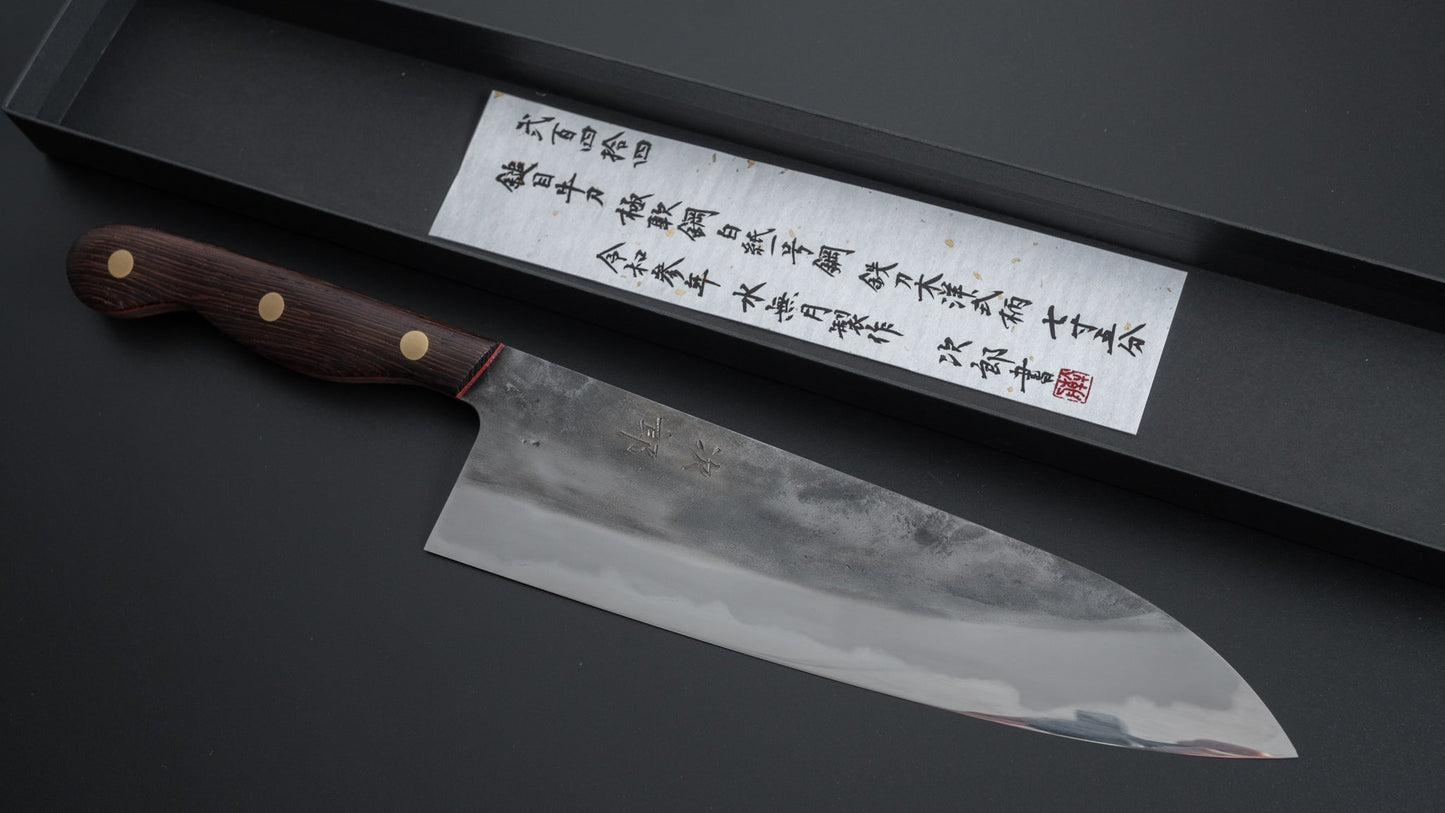 弐百四拾四
鎚目牛刀 極軟鋼白紙一号鋼 鉄刀木洋式柄 七寸五分
令和参年 水無月製作 次郎書
次